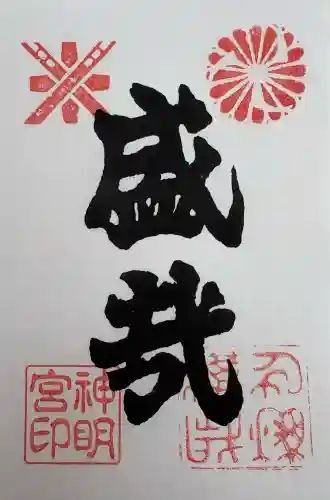 盛哉
神明
宮印